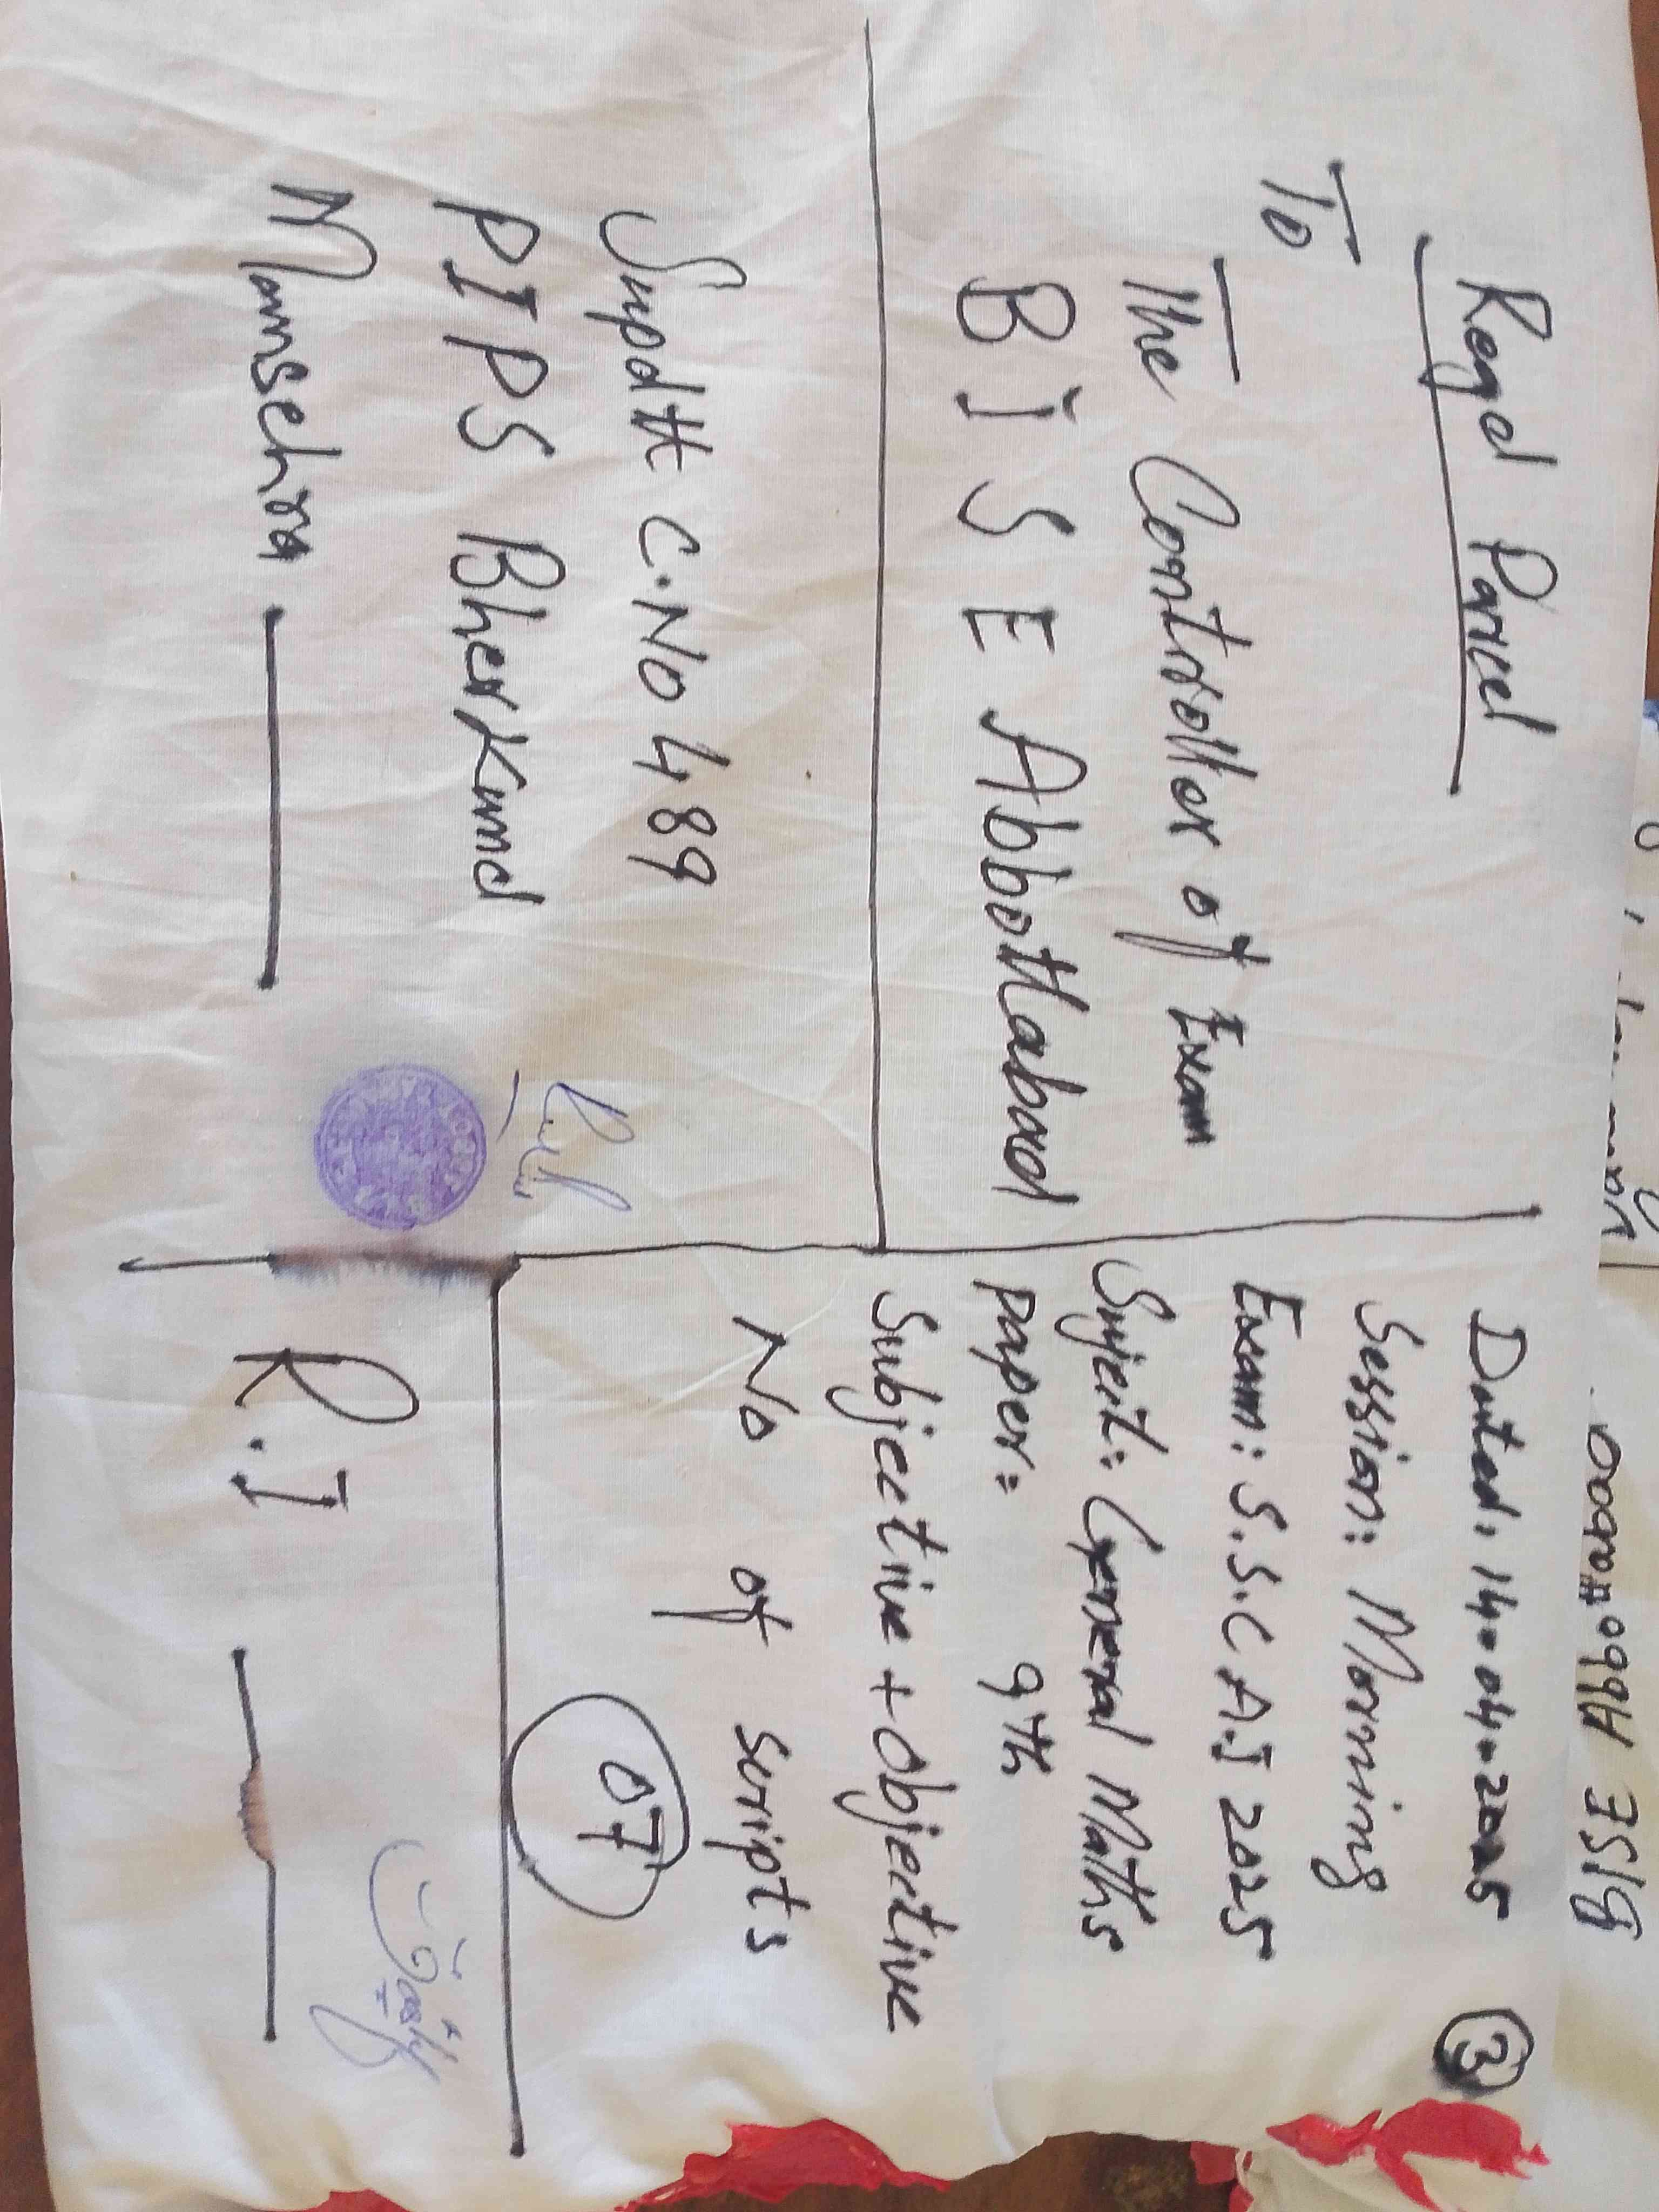 Regd Parcel
To
The Controller of Exam
B I S E Abbottabad
Supdtt C.No 489
PIPS Bherkund
Mansehra
Dated: 14-04-2025
3
Session: Morning
Exam: S.S.C A.I 2025
Sujert: General Maths
paper: 9th
Subjective + objective
No of scripts
07
R.I
BISE Abbottabad